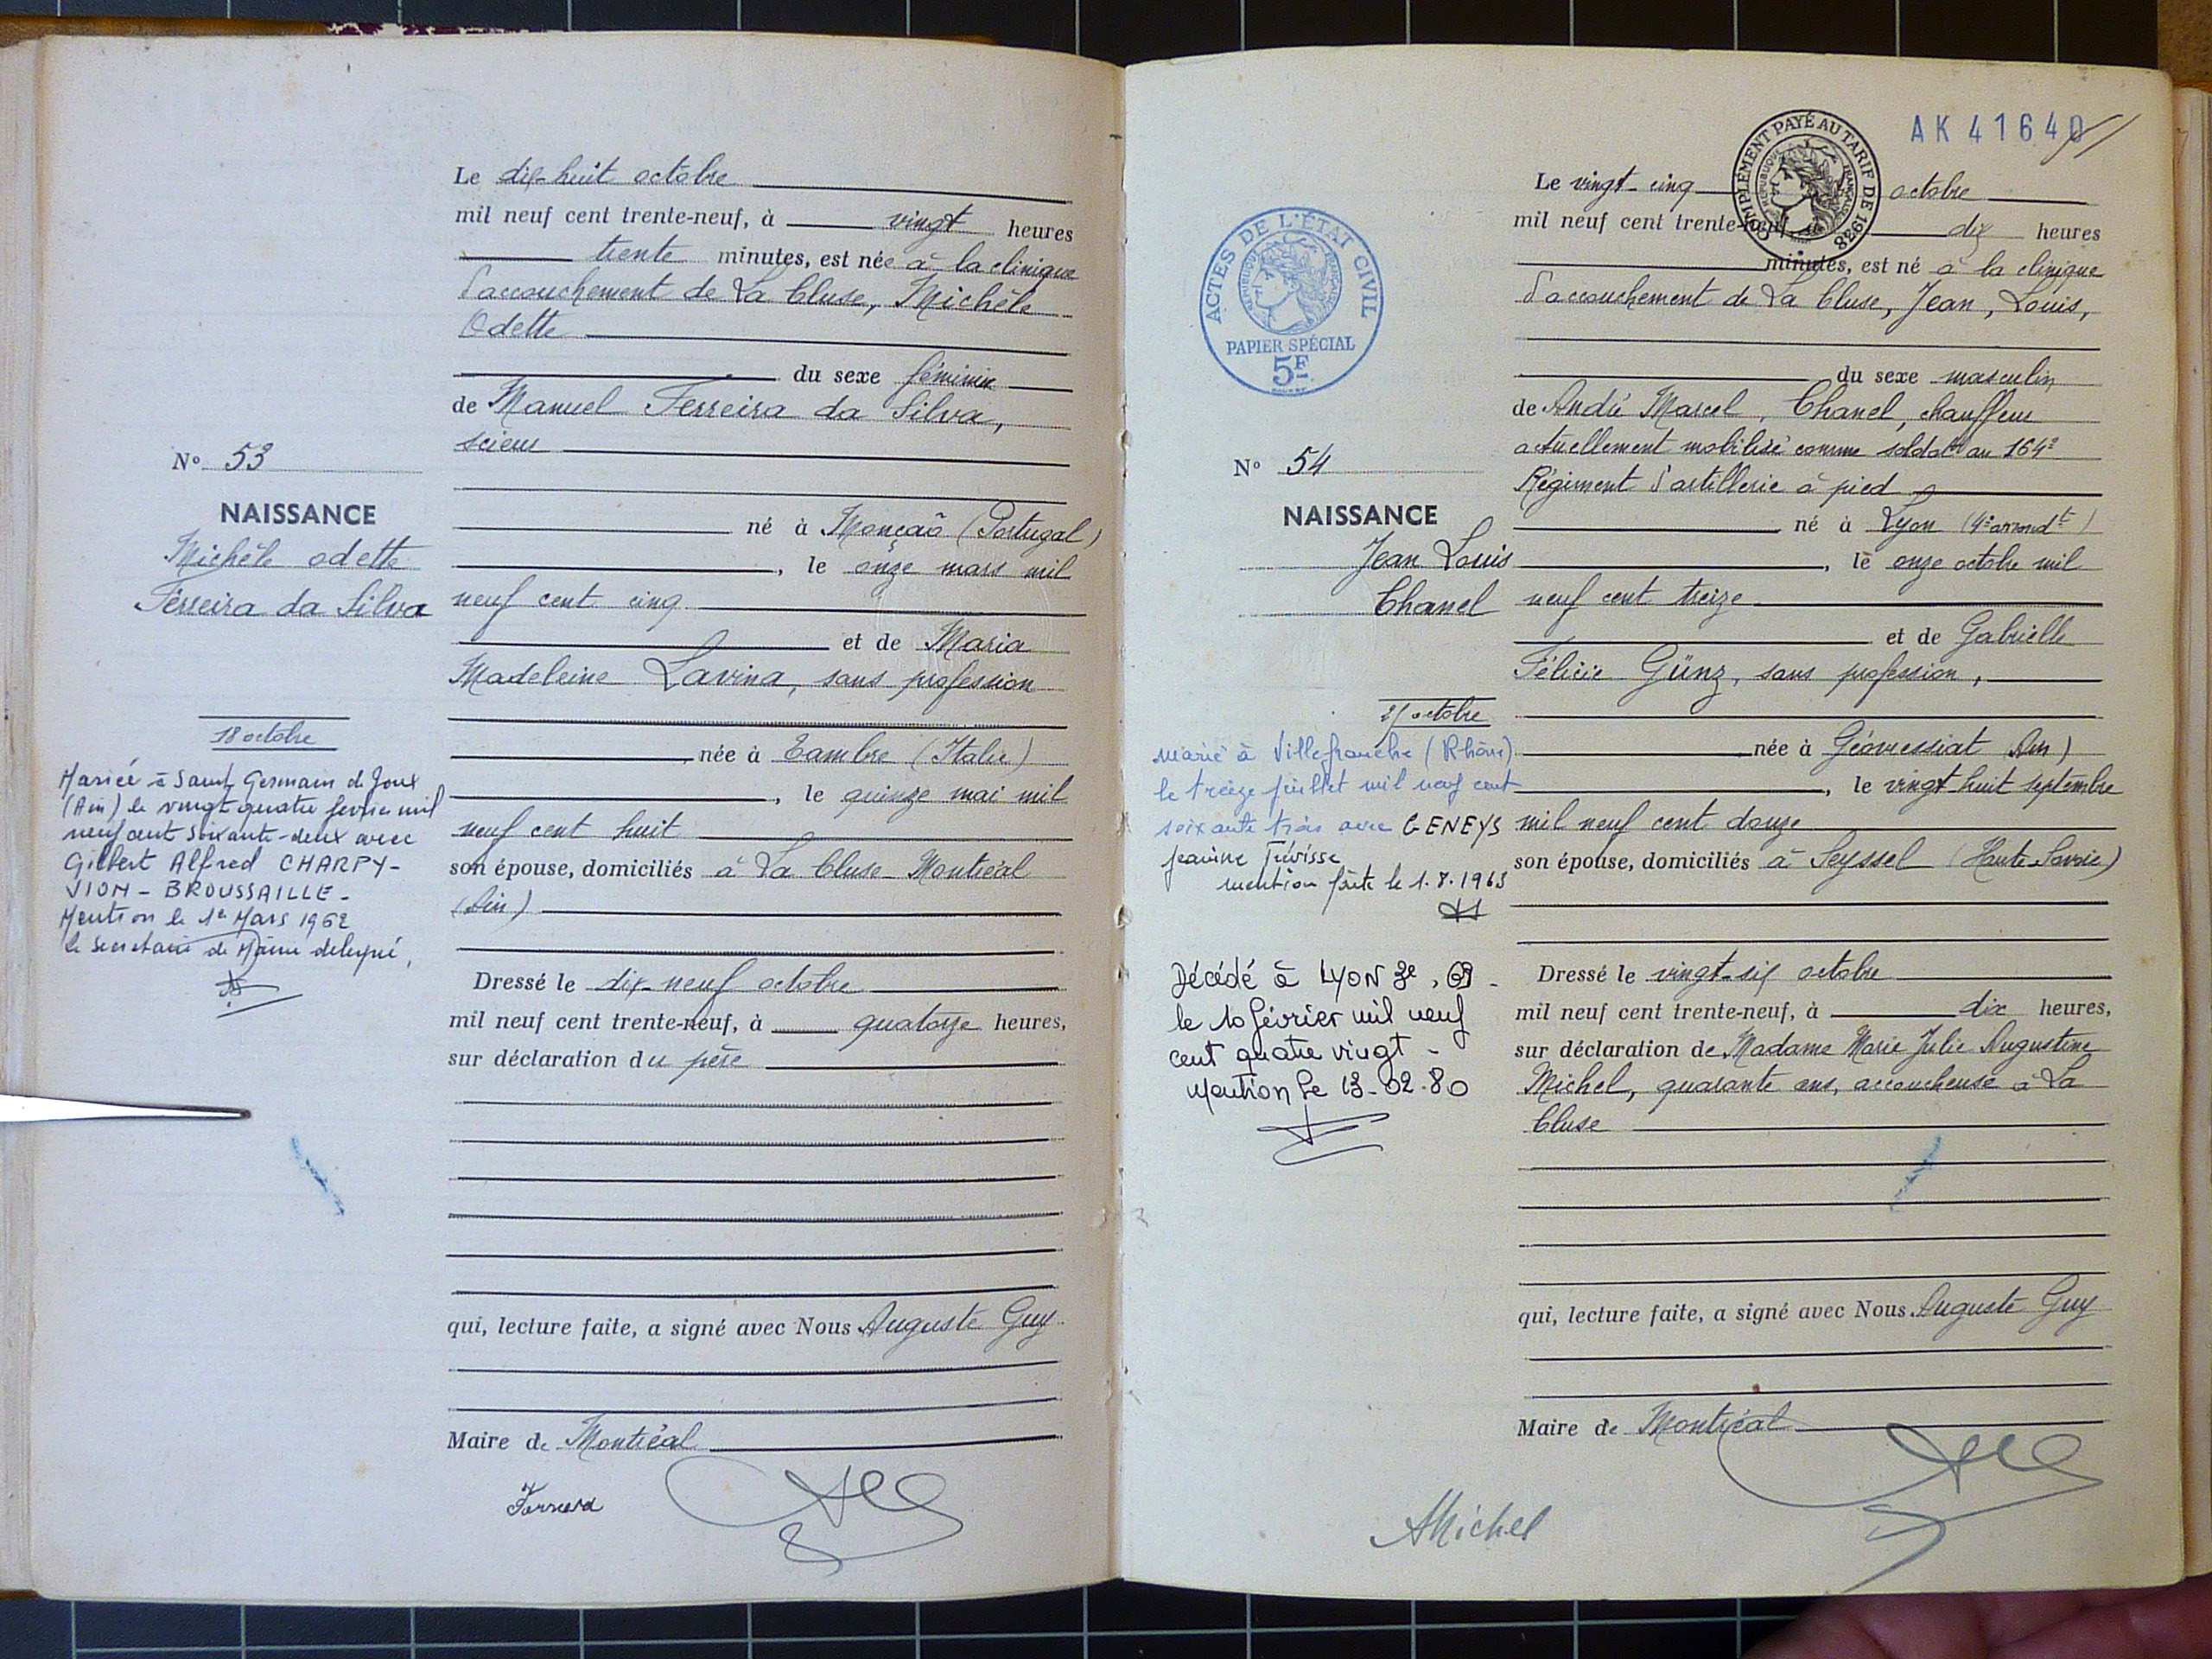 Le dix-huit octobre
mil neuf cent trente-neuf, à vingt heures
trente minutes, est née à la clinique
d'accouchement de La Cluse, Michèle
Odette
du sexe féminin
de Manuel Ferreira da Silva,
scieur
né à Monçaõ (Portugal)
, le onze mars mil
neuf cent cinq
et de Maria
Madeleine Lavina, sans profession
née à Tambre (Italie)
, le quinze mai mil
neuf cent huit
son épouse, domiciliés à La Cluse-Montréal
(Ain)
Dressé le dix-neuf octobre
mil neuf cent trente-neuf, à quatorze heures,
sur déclaration du père
qui, lecture faite, a signé avec Nous Auguste Guy
Maire de Montréal
N° 53
NAISSANCE
Michèle Odette
Ferreira da Silva
18 octobre
Mariée à Saint Germain de Joux
(Ain) le vingt quatre fevrier mil
neuf cent soixante-deux avec
Gilbert Alfred CHARPY-
VION-BROUSSAILLE-
Mention le 1e Mars 1962
le secretaire de Mairie delegué,
AK 41640
COMPLÉMENT PAYÉ AU TARIF DE 1938
RÉPUBLIQUE FRANÇAISE
Le vingt-cinq octobre
mil neuf cent trente-neuf, à dix heures
minutes, est né à la clinique
d'accouchement de La Cluse, Jean, Louis,
du sexe masculin
de André Marcel, Chanel, chauffeur
actuellement mobilisé comme soldat au 164e
Régiment d'artillerie à pied
né à Lyon (4e arrondt)
, le onze octobre mil
neuf cent treize
et de Gabrielle
Félicie Günz, sans profession,
née à Géovressiat (Ain)
, le vingt-huit septembre
mil neuf cent douze
son épouse, domiciliés à Seyssel (Haute-Savoie)
Dressé le vingt-six octobre
mil neuf cent trente-neuf, à dix heures,
sur déclaration de Madame Marie Julie Augustine
Michel, quarante ans, accoucheuse à La
Cluse
qui, lecture faite, a signé avec Nous Auguste Guy
Maire de Montréal
AMichel
ACTES DE L'ÉTAT CIVIL
RÉPUBLIQUE FRANÇAISE
PAPIER SPÉCIAL
5F
N° 54
NAISSANCE
Jean Louis
Chanel
25 octobre
Marié à Villefranche (Rhône)
le treize juillet mil neuf cent
soixante trois avec GENEYS
Jeanine
mention faite le 1.8.1963
Décédé à LYON 3e, 69 -
le 10 février mil neuf
cent quatre vingt -
Mention le 13-02-80